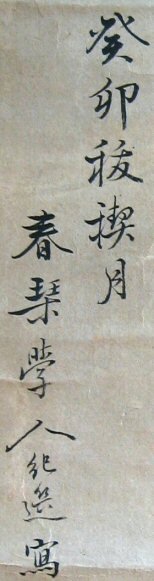 癸卯祓禊月
春琹學人紀選寫